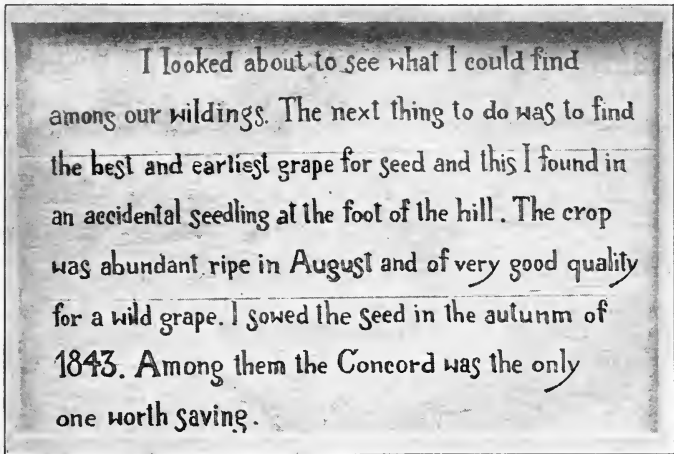 I looked about to see what I could find
among our wildings. The next thing to do was to find
the best and earliest grape for seed and this I found in
an accidental seedling at the foot of the hill. The crop
was abundant, ripe in August and of very good quality
for a wild grape. I sowed the seed in the autunm of
1843. Among them the Concord was the only
one worth saving.